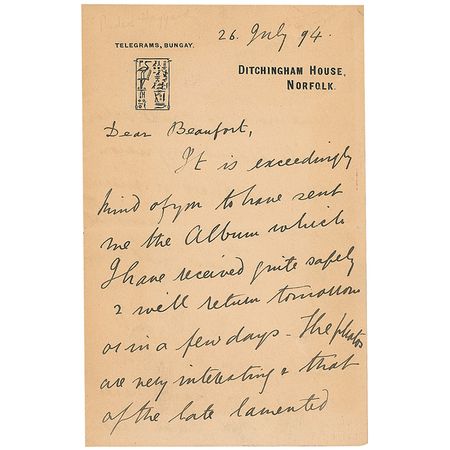 Rider Haggard
26. July 94.
TELEGRAMS, BUNGAY.
DITCHINGHAM HOUSE,
NORFOLK.
Dear Beaufort,
It is exceedingly
kind of you to have sent
me the Album which
I have received quite safely
& will return tomorrow
or in a few days - The photos
are very interesting & that
of the late lamented